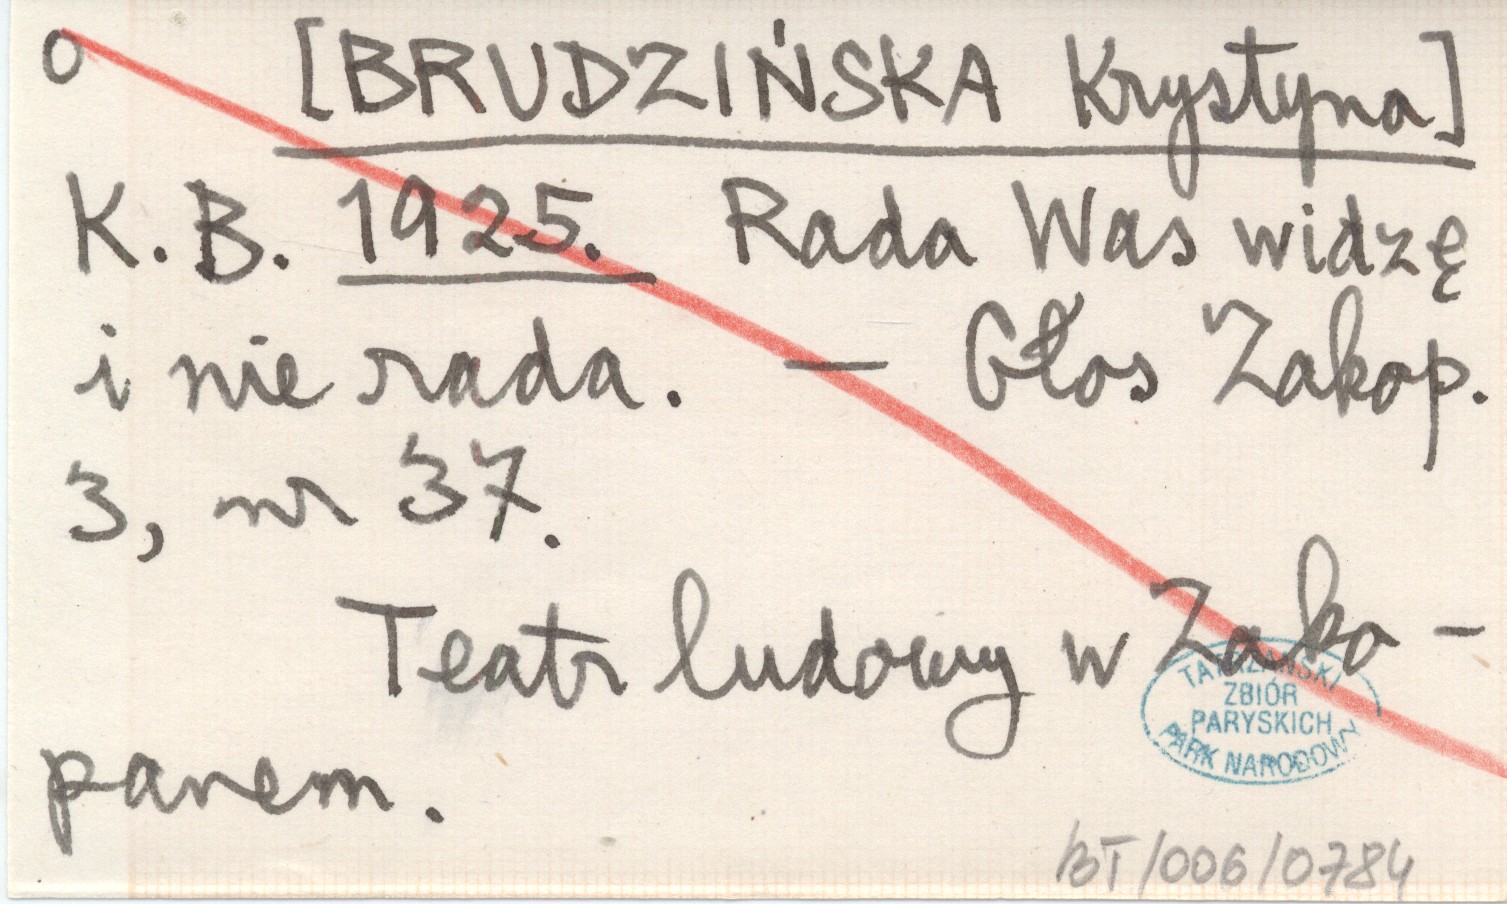 o [BRUDZIŃSKA Krystyna]
K. B. 1925. Rada Was widzę
i nie rada. — Głos Zakop.
3, nr 37.
Teatr ludowy w Zako-
panem.
TATRZAŃSKI
ZBIÓR
PARYSKICH
PARK NARODOWY
BT/006/0784